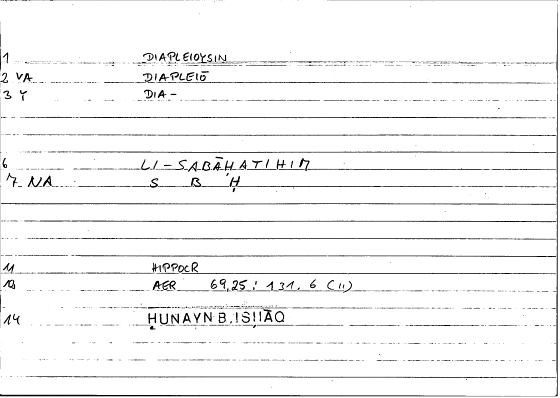 1 DIAPLEIOYSIN
2 VA DIAPLEIŌ
3 Y DIA-
6 LI-SABĀḤATIHIM
7 NA S B Ḥ
11 HIPPOCR
12 AER 69,25; 131.6 (11)
14 ḤUNAYN B.ISḤĀQ